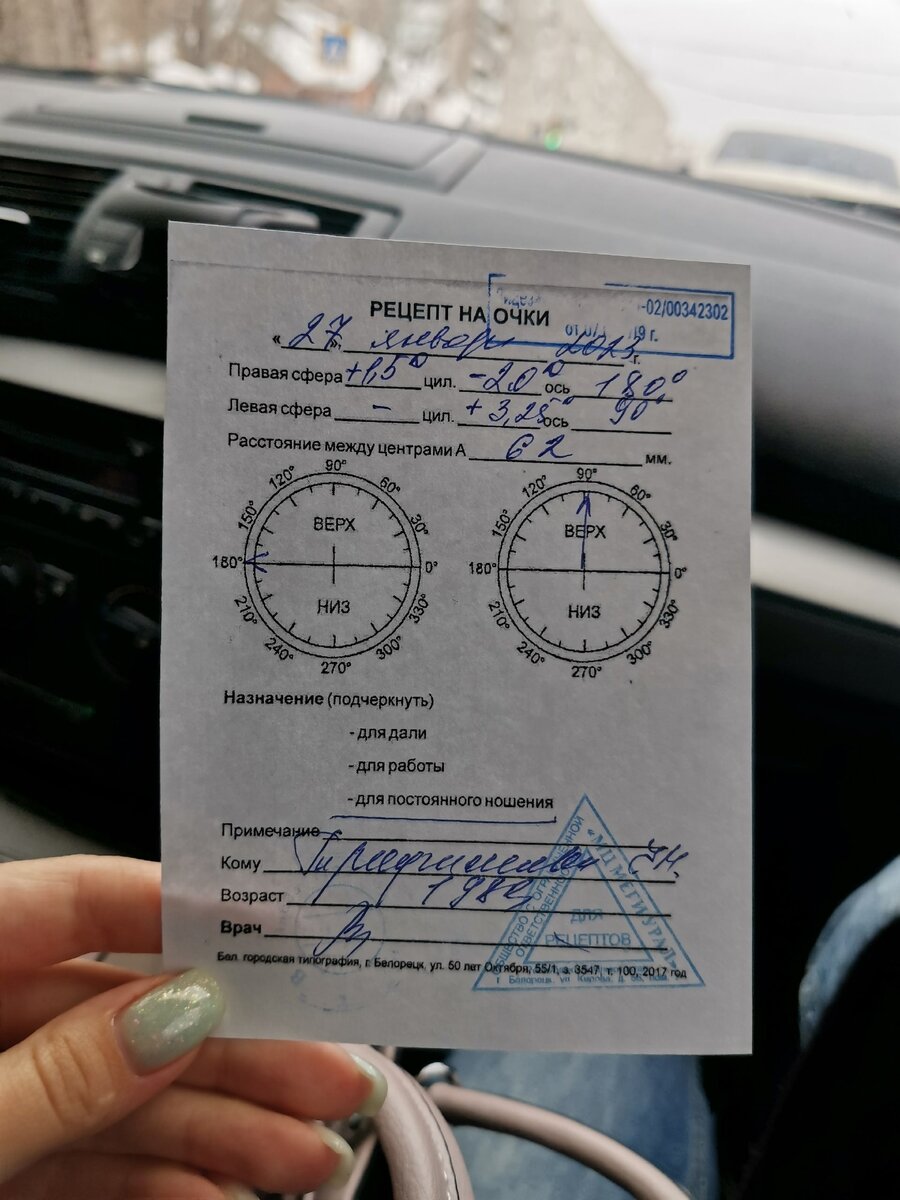 -02/00342302
РЕЦЕПТ НА ОЧКИ
19 г.
« 27 » января 2023 г.
Правая сфера +1,5ᴰ цил. -2.0ᴰ ось 180°
Левая сфера - цил. + 3,25ᴰ ось 90°
Расстояние между центрами А 62 мм.
90°
120° 60°
150° ВЕРХ 30°
180° 0°
210° НИЗ 330°
240° 300°
270°
90°
120° 60°
150° ВЕРХ 30°
180° 0°
210° НИЗ 330°
240° 300°
270°
Назначение (подчеркнуть)
- для дали
- для работы
- для постоянного ношения
Примечание
Кому
Возраст
Врач
ОБЩЕСТВО С ОГРАНИЧЕННОЙ
ОТВЕТСТВЕННОСТЬЮ
ДЛЯ
РЕЦЕПТОВ
Бел. городская типография, г. Белорецк, ул. 50 лет Октября, 55/1, з. 3547, т. 100, 2017 год
г. Белорецк, ул. Кирова, д.